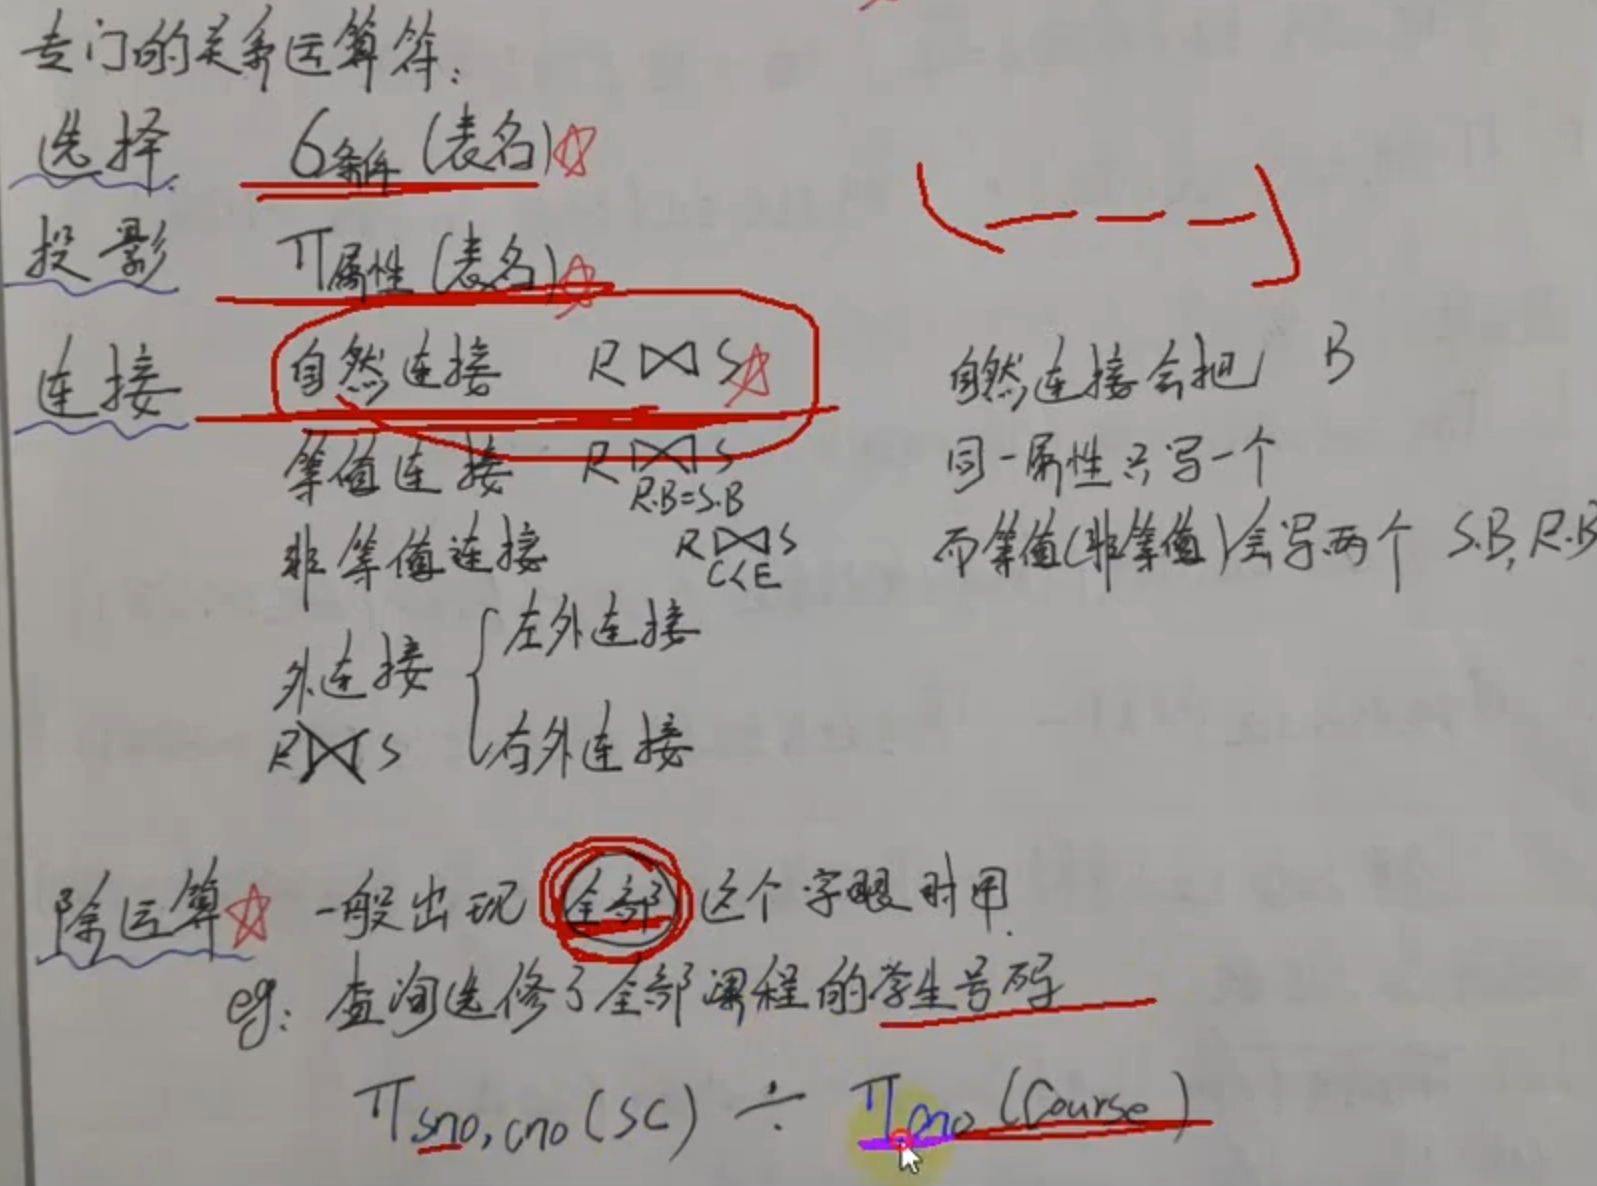 专门的关系运算符：
选择 σ条件(表名)
投影 π属性(表名)
连接 自然连接 R⋈S
等值连接 R⋈S
R.B=S.B
非等值连接 R⋈S
C<E
外连接 左外连接
R⋈S 右外连接
自然连接会把 B
同一属性只写一个
而等值(非等值)会写两个 S.B, R.B
除运算 一般出现全部这个字眼时用.
eg: 查询选修了全部课程的学生号码
πsno,cno(SC) ÷ πcno(Course)